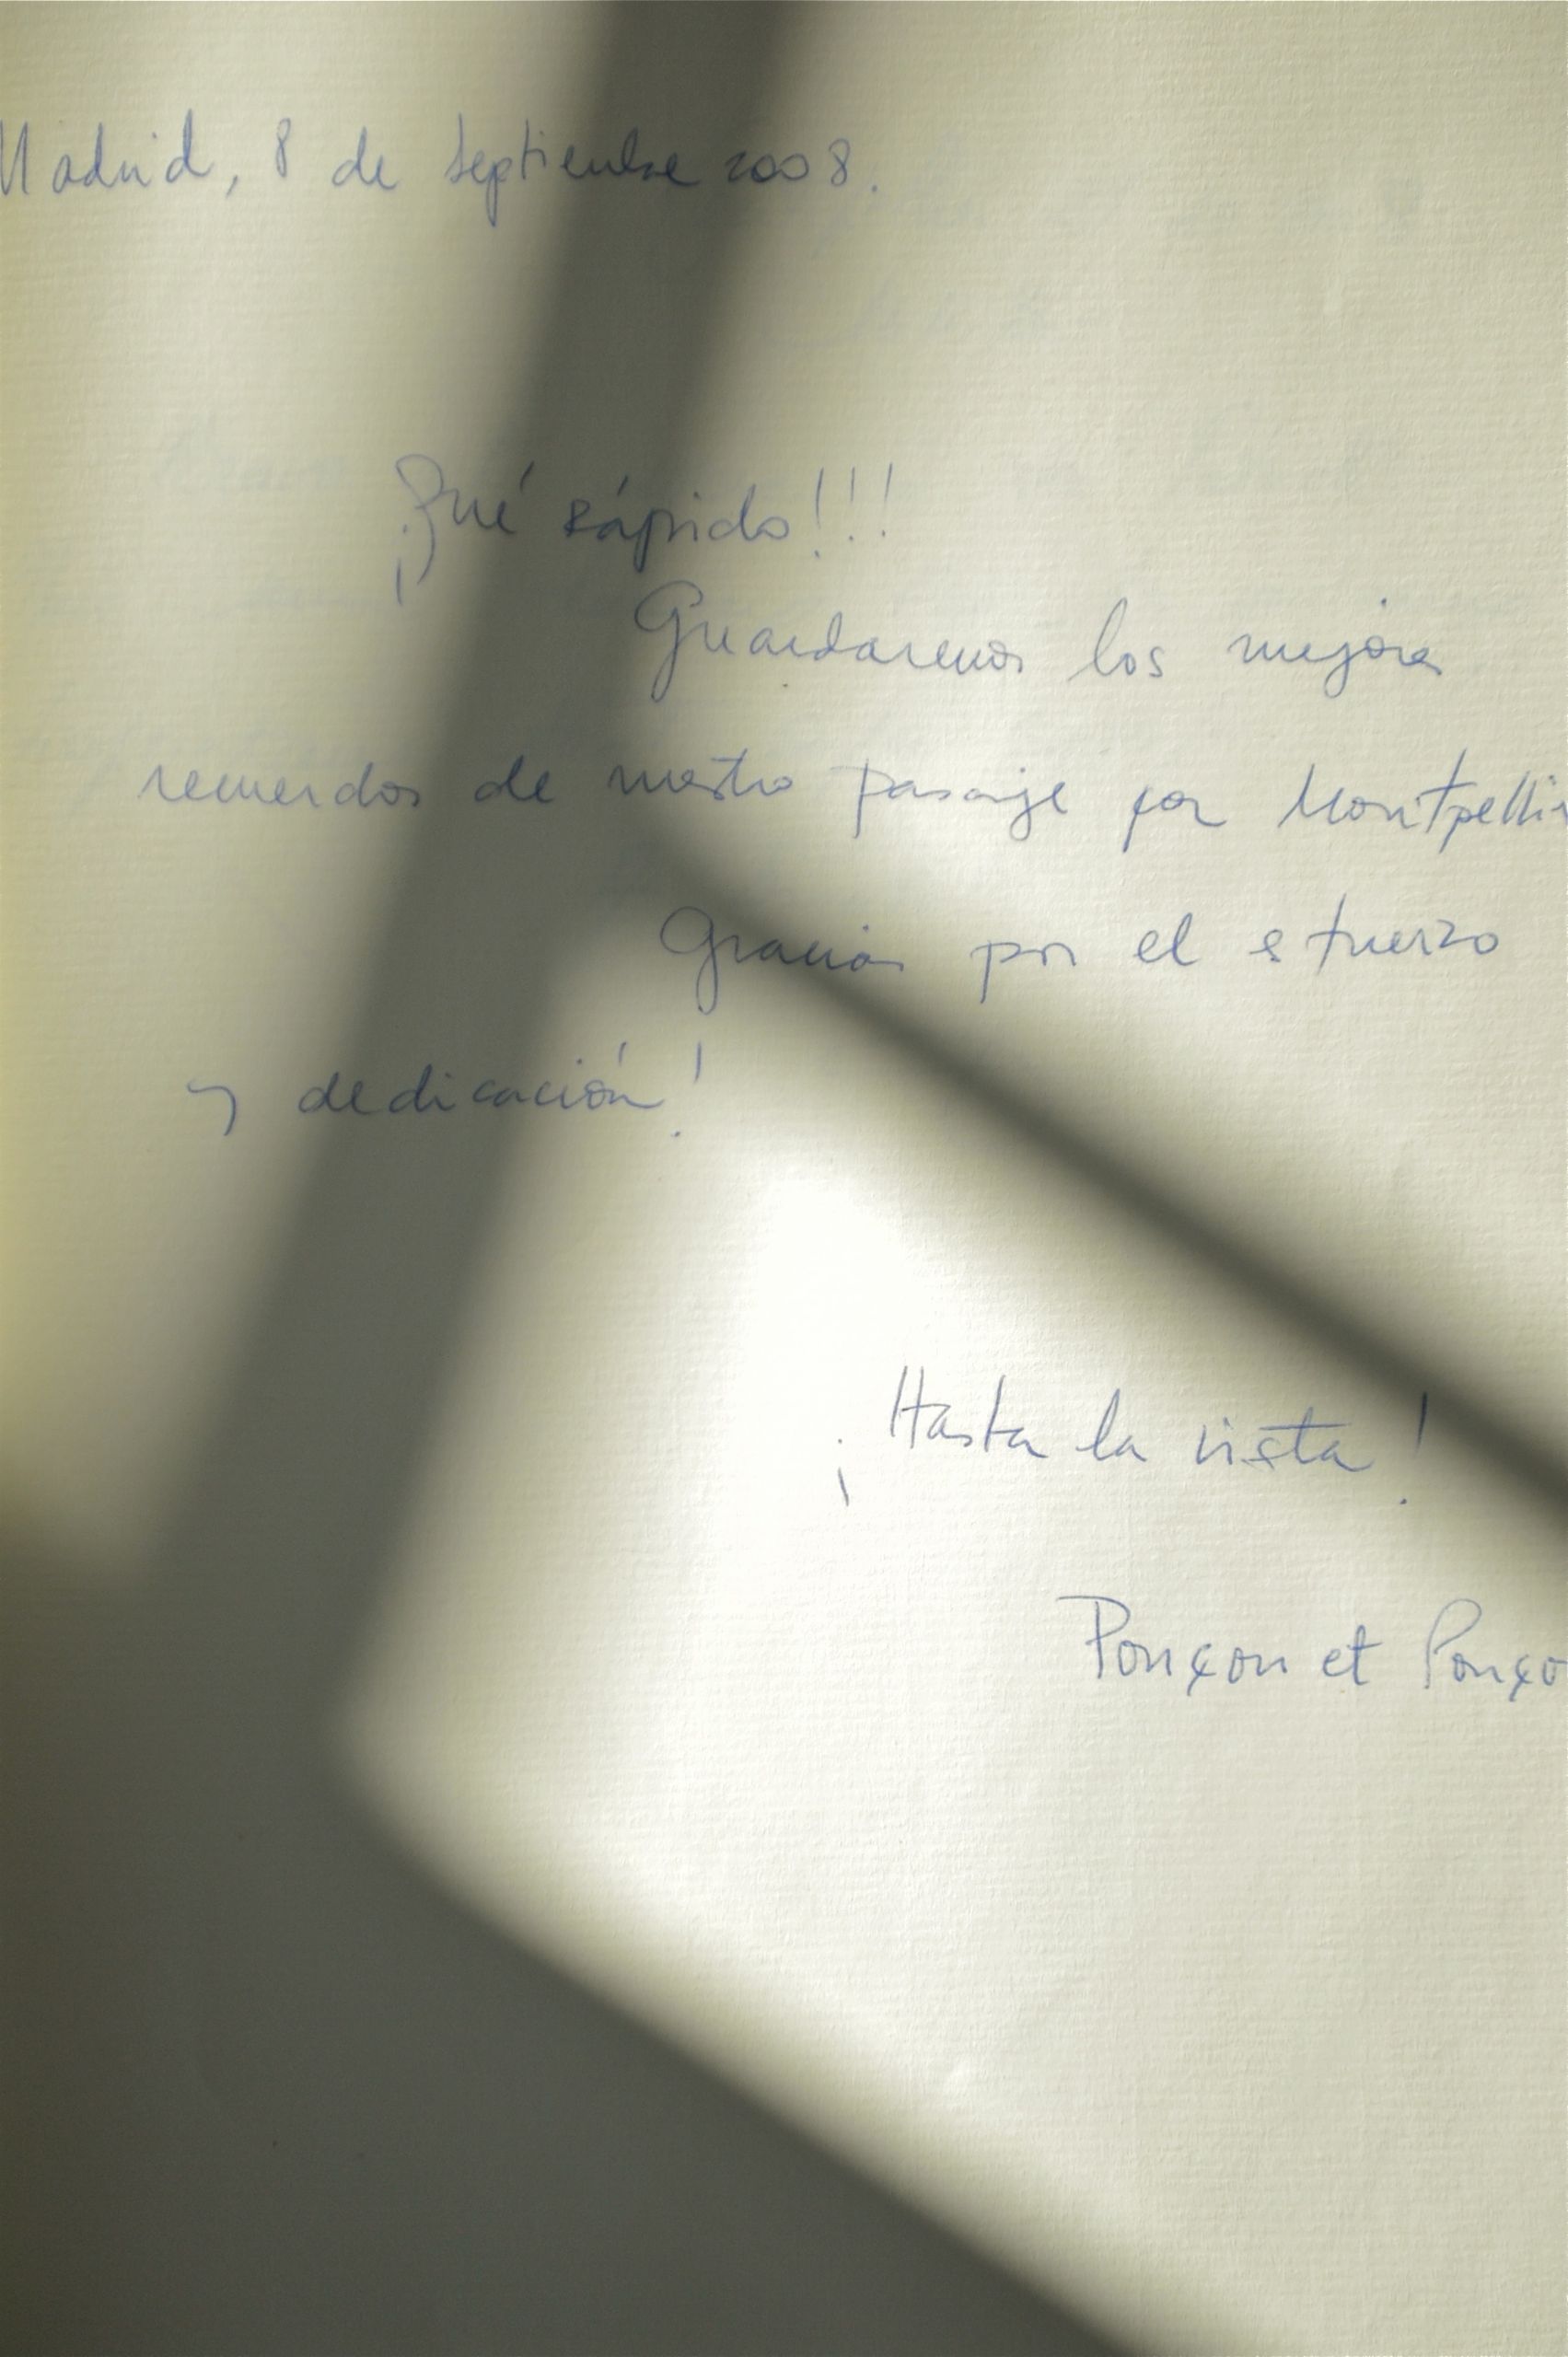 Madrid, 8 de septiembre 2008.
¡Qué rápido!!!
Guardaremos los mejores
recuerdos de nuestro pasaje por Montpellie
Gracias por el esfuerzo
y dedicación!
¡Hasta la vista!
Ponçon et Ponço